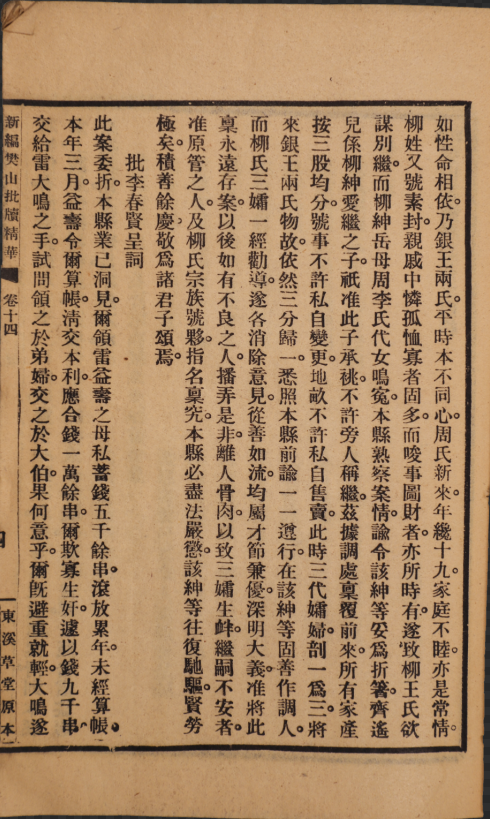 如性命相依乃銀王兩氏平時本不同心周氏新來年纔十九家庭不睦亦是常情
柳姓又號素封親戚中憐孤恤寡者固多而唆事圖財者亦所時有遂致柳王氏欲
謀別繼而柳紳岳母周李氏代女鳴寃本縣熟察案情諭令該紳等妥爲折籌齊遙
兒係柳紳愛繼之子祇准此子承祧不許旁人稱繼茲據調處稟覆前來所有家產
按三股均分號事不許私自變更地畝不許私自售賣此時三代孀婦剖一爲三將
來銀王兩氏物故依然三分歸一悉照本縣前諭一一遵行在該紳等固善作調人
而柳氏三孀一經勸導遂各消除意見從善如流均屬才節兼優深明大義准將此
稟永遠存案以後如有不良之人播弄是非離人骨肉以致三孀生衅繼嗣不安者
准原管之人及柳氏宗族號夥指名稟究本縣必盡法嚴懲該紳等往復馳驅賢勞
極矣積善餘慶敬爲諸君子頌焉
批李春賢呈詞
此案委折本縣業已洞見爾領雷益壽之母私蓄錢五千餘串滾放累年未經算帳
本年三月益壽令爾算帳淸交本利應合錢一萬餘串爾欺寡生奸遽以錢九千串
交給雷大鳴之手試問領之於弟婦交之於大伯果何意乎爾旣避重就輕大鳴遂
新編樊山批牘精華
卷十四
東溪草堂原本